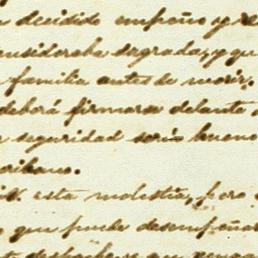 decidido empeño y se
consideraba sagrada, y que
familia antes de morir.
deberá firmarse delante
seguridad seria bueno
cribano.
esta molestia, pero
que puede desempeñar